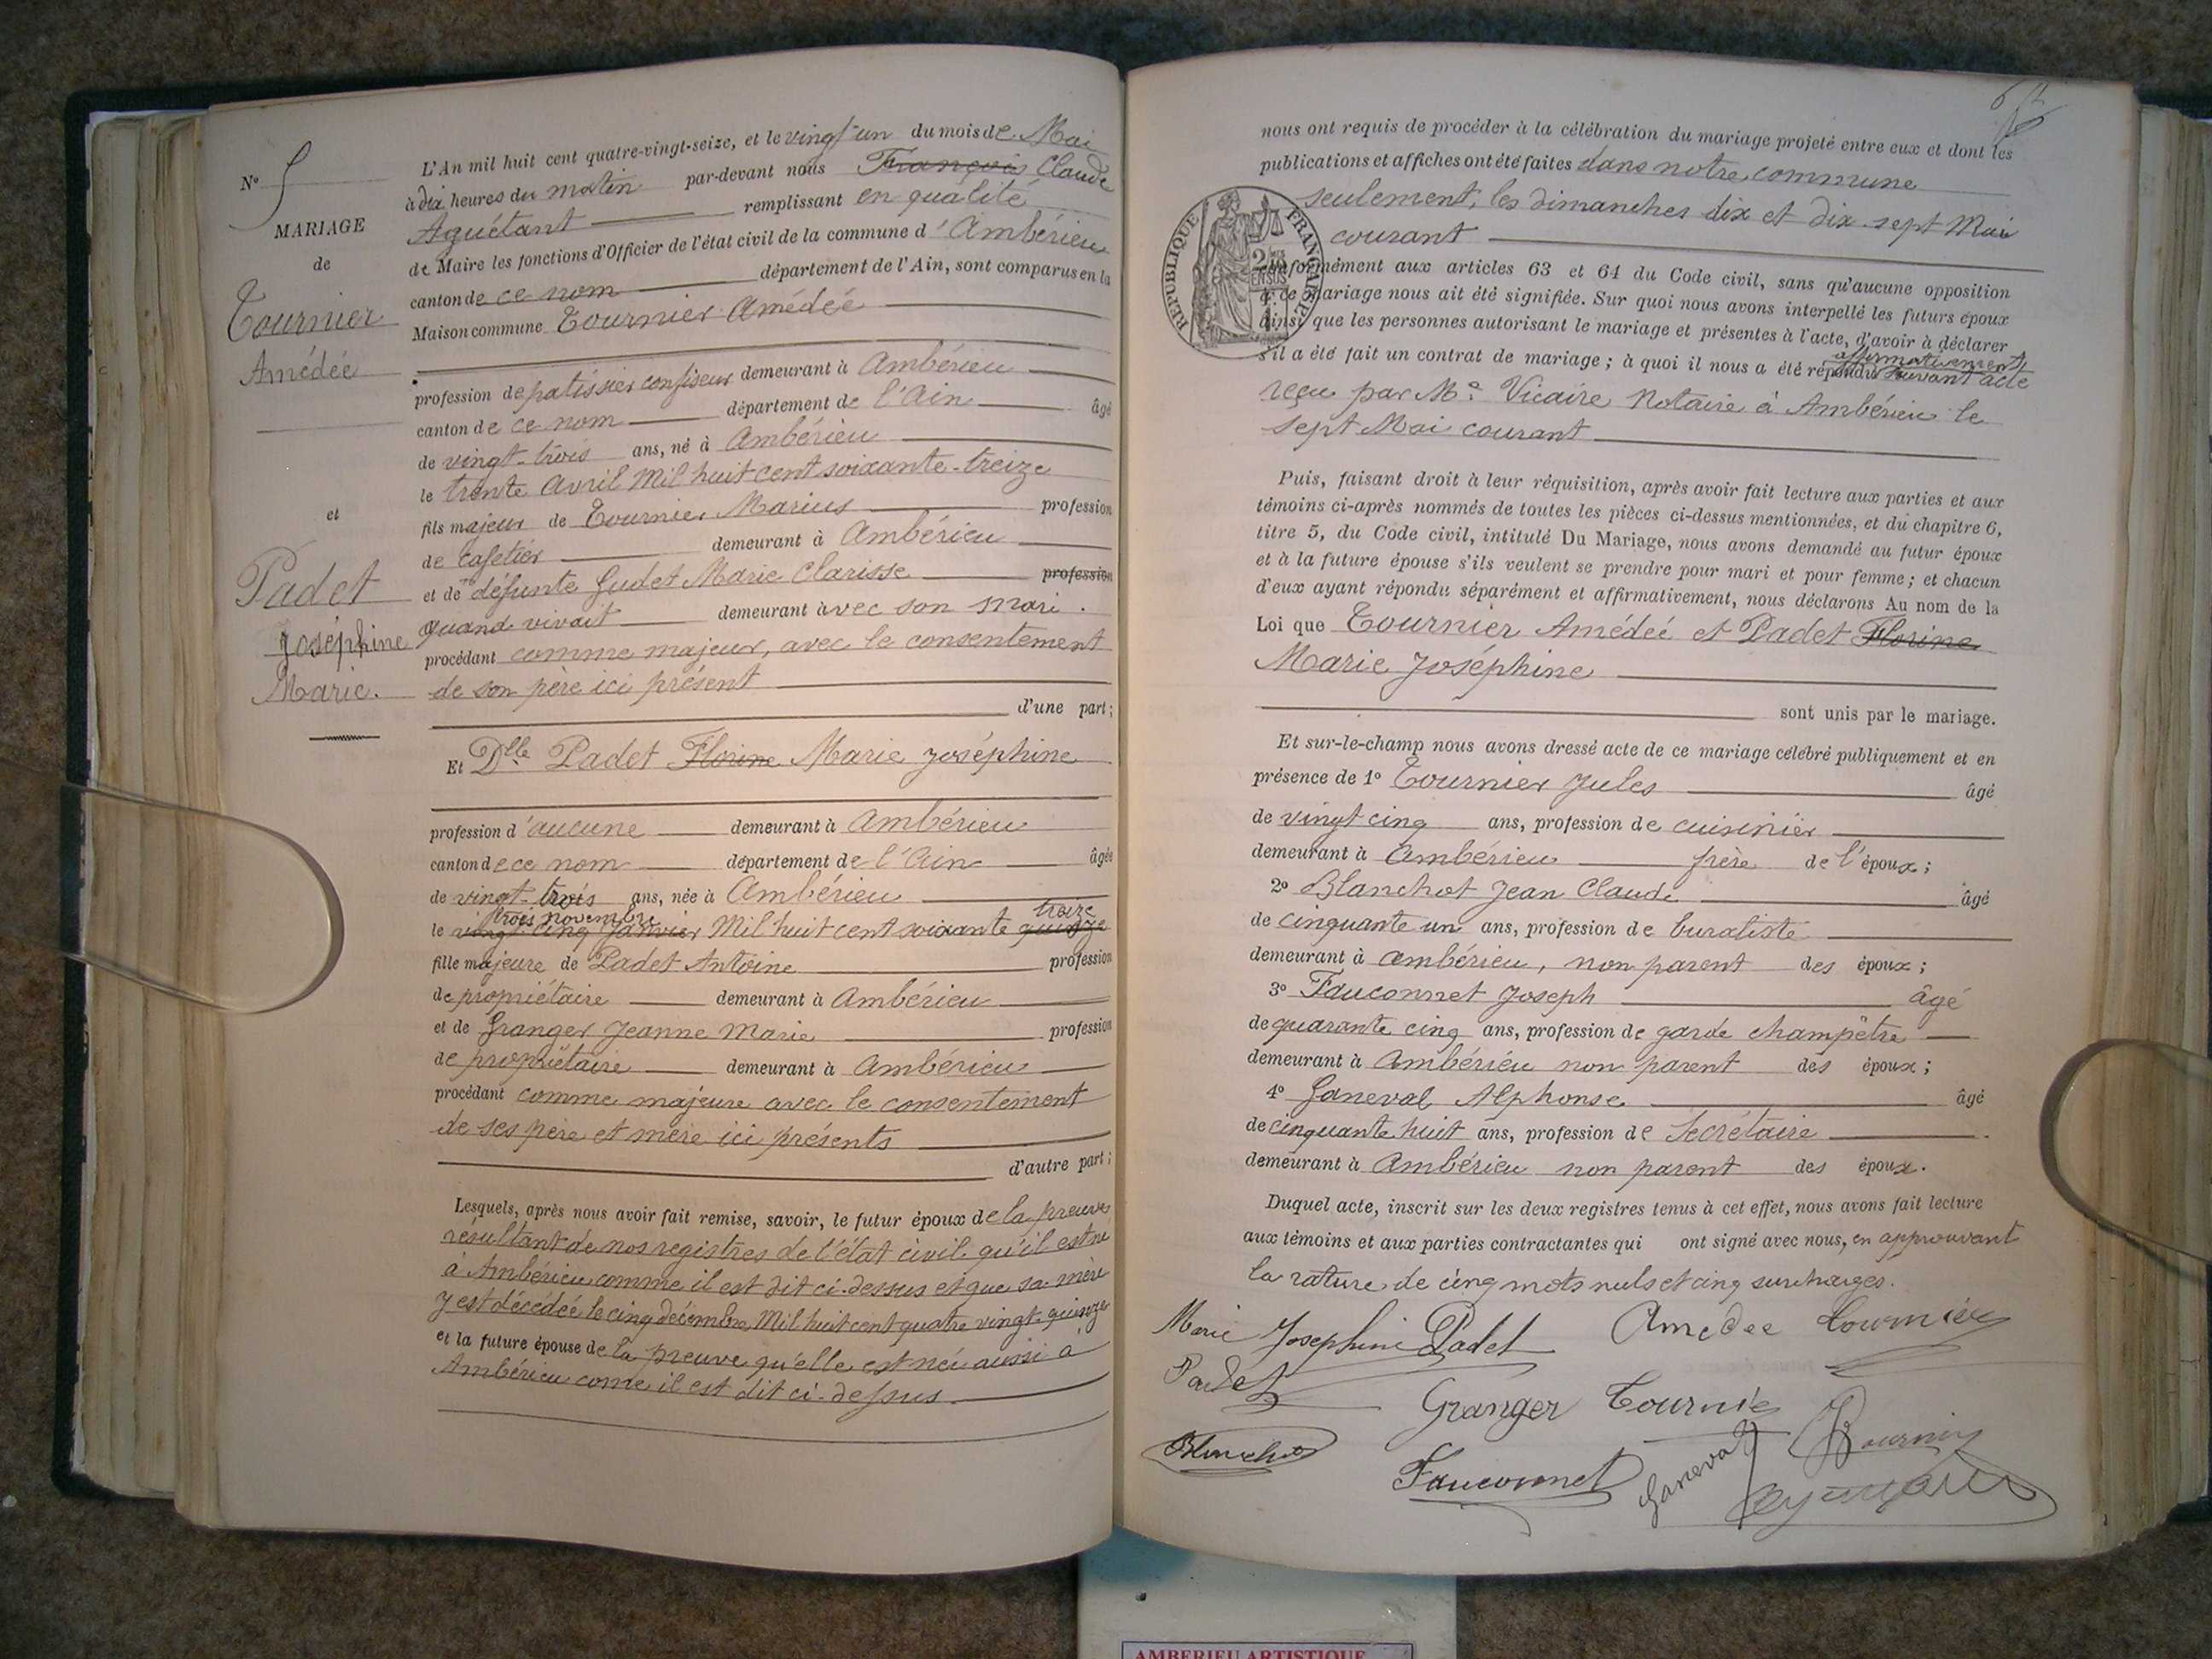 N° 5
MARIAGE
de
Tournier
Amédée
et
Padet
Joséphine
Marie.
L'An mil huit cent quatre-vingt-seize, et le vingt-un du mois de Mai
à dix heures du matin par-devant nous François Claude
Aguétant remplissant en qualité
de Maire les fonctions d'Officier de l'état civil de la commune d'Ambérieu
canton de ce nom département de l'Ain, sont comparus en la
Maison commune Tournier Amédée
profession de patissier confiseur demeurant à Ambérieu
canton de ce nom département de l'Ain âgé
de vingt-trois ans, né à Ambérieu
le trente Avril Mil huit cent soixante-treize
fils majeur de Tournier Marius profession
de cafetier demeurant à Ambérieu
et de défunte Gudet Marie Clarisse profession
quand vivait demeurant avec son mari.
procédant comme majeur, avec le consentement
de son père ici présent
d'une part;
Et Dlle Padet Florine Marie Joséphine
profession d'aucune demeurant à Ambérieu
canton de ce nom département de l'Ain âgée
de vingt-trois ans, née à Ambérieu
trois novembre treize
le vingt-cinq Janvier Mil huit cent soixante quinze
fille majeure de Padet Antoine profession
de propriétaire demeurant à Ambérieu
et de Granger Jeanne Marie profession
de propriétaire demeurant à Ambérieu
procédant comme majeure avec le consentement
de ses père et mère ici présents
d'autre part;
Lesquels, après nous avoir fait remise, savoir, le futur époux de la preuve
résultant de nos registres de l'état civil qu'il est né
à Ambérieu comme il est dit ci-dessus et que sa mère
y est décédée le cinq décembre Mil huit cent quatre vingt-quinze
et la future épouse de la preuve qu'elle est née aussi à
Ambérieu come il est dit ci-dessus.
nous ont requis de procéder à la célébration du mariage projeté entre eux et dont les
publications et affiches ont été faites dans notre commune
seulement, les dimanches dix et dix-sept Mai
courant
RÉPUBLIQUE FRANÇAISE
conformément aux articles 63 et 64 du Code civil, sans qu'aucune opposition
à ce mariage nous ait été signifiée. Sur quoi nous avons interpellé les futurs époux
ainsi que les personnes autorisant le mariage et présentes à l'acte, d'avoir à déclarer
affirmativement
s'il a été fait un contrat de mariage; à quoi il nous a été répondu suivant acte
reçu par Me Vicaire Notaire à Ambérieu le
sept Mai courant
Puis, faisant droit à leur réquisition, après avoir fait lecture aux parties et aux
témoins ci-après nommés de toutes les pièces ci-dessus mentionnées, et du chapitre 6,
titre 5, du Code civil, intitulé Du Mariage, nous avons demandé au futur époux
et à la future épouse s'ils veulent se prendre pour mari et pour femme; et chacun
d'eux ayant répondu séparément et affirmativement, nous déclarons Au nom de la
Loi que Tournier Amédée et Padet Florine
Marie Joséphine
sont unis par le mariage.
Et sur-le-champ nous avons dressé acte de ce mariage célébré publiquement et en
présence de 1° Tournier Jules âgé
de vingt cinq ans, profession de cuisinier
demeurant à Ambérieu frère de l'époux;
2° Blanchot Jean Claude âgé
de cinquante un ans, profession de buraliste
demeurant à Ambérieu, non parent des époux;
3° Fauconnet Joseph âgé
de quarante cinq ans, profession de garde champêtre
demeurant à Ambérieu non parent des époux;
4° Ganeval Alphonse âgé
de cinquante huit ans, profession de Secrétaire
demeurant à Ambérieu non parent des époux.
Duquel acte, inscrit sur les deux registres tenus à cet effet, nous avons fait lecture
aux témoins et aux parties contractantes qui ont signé avec nous, en approuvant
la rature de cinq mots nuls et cinq surchargés.
Marie Josephine Padet Amedee Tournier
Padet
Granger Tournier
Blanchot
Fauconnet Ganeval
AMBERIEU ARTISTIQUE